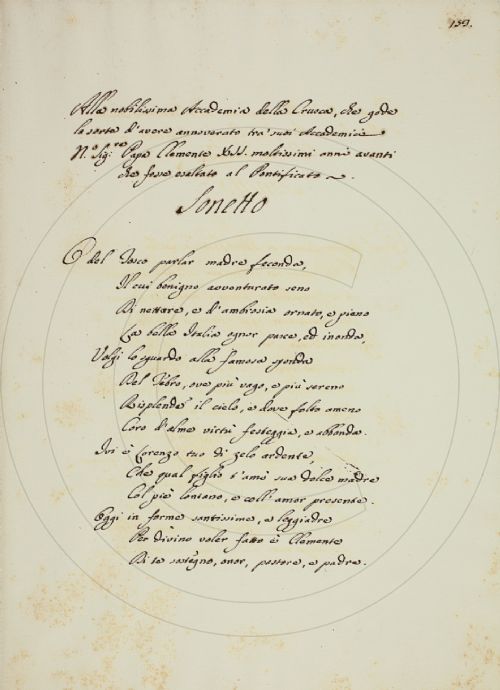 159.
Alla nobilissima Accademia della Crusca, che gode
la sorte d'avere annoverato tra' suoi Accademici
N.º Sig.re Papa Clemente XII. moltissimi anni avanti
che fosse esaltato al Pontificato.
Sonetto
O del Tosco parlar madre feconda,
Il cui benigno avventurato seno
Di nettare, e d'ambrosia ornato, e pieno
La bella Italia ognor pasce, ed inonda,
Volgi lo sguardo alla famosa sponda
Del Tebro, ove più vago, e più sereno
Risplende il cielo, e dove folto ameno
Coro d'alme virtù festeggia, e abbonda.
Ivi è Lorenzo tuo di zelo ardente,
Che qual figlio t'amò sua dolce madre
Col piè lontano, e coll'amor presente.
Oggi in forme santissime, e leggiadre
Per divino voler fatto è Clemente
Di te sostegno, onor, pastore, e padre.